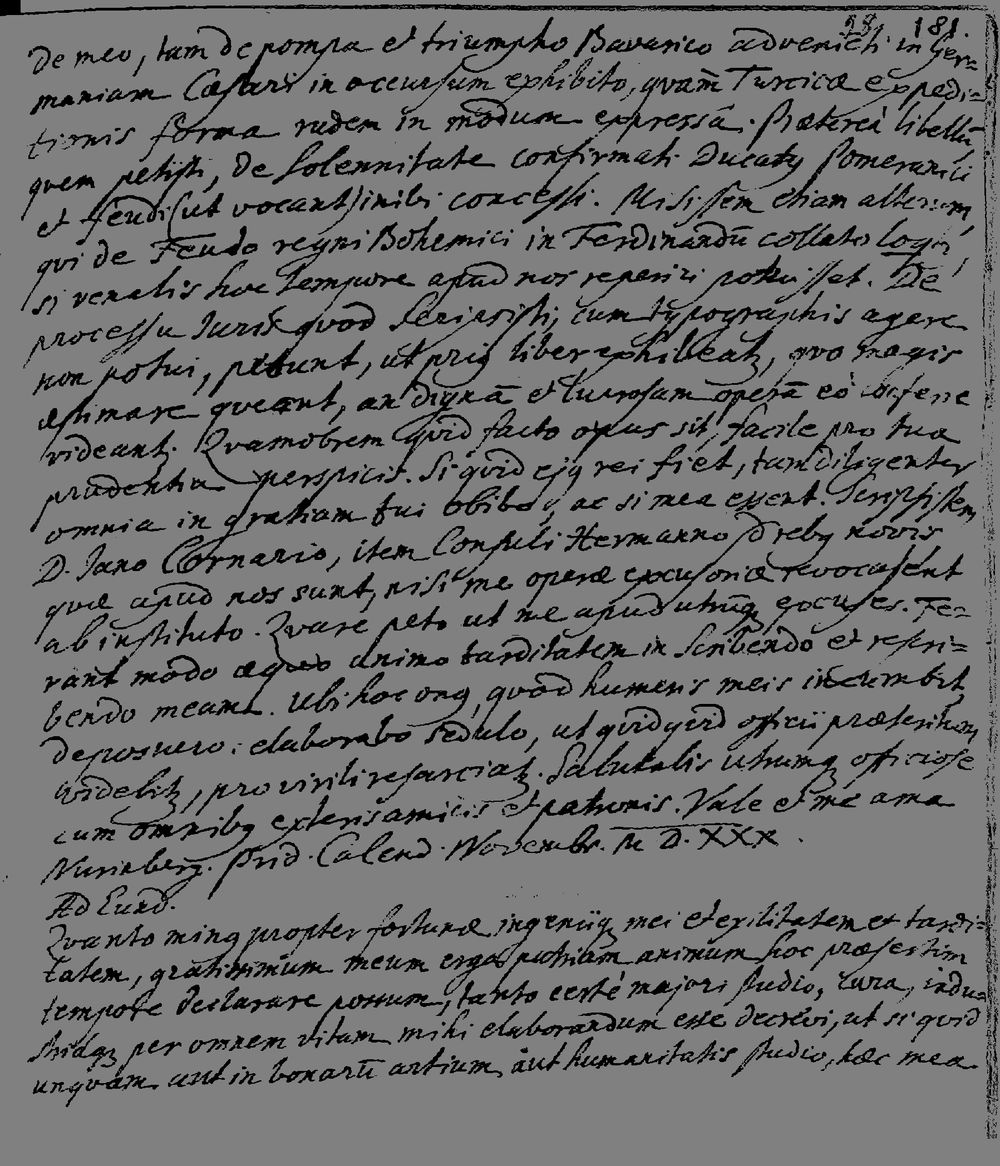 181.
de meo, tam de pompa et triumpho Bavarico advenienti in Ger=
maniam Cæsari in occursum exhibito, quam̃ Turcicæ expedi=
tionis forma rudem in modum expressâ. Præterea libellũ
quem petisti, de Solennitate confirmati Ducatꝰ Pomeranici
et feudi (ut vocant) inibi concessi. Misissem etiam alterum,
qui de Feudo regni Bohemici in Ferdinandũ collato
si venalis hoc tempore apud nos reperiri potuisset. De
processu Juris quod scripsisti, cum typographis agere
non potui, petunt, ut priꝰ liber exhibeatꝫ, quo magis
æstimare queant, an dignã et lucrosam operã eò
videantꝫ. Quamobrem quid facto opus sit, facile pro tua
prudentia perspicis. Si quid ejꝰ rei fiet, tam diligenter
omnia in gratiam tui obibo, ac si mea essent. Scripsissem
D. Jano Cornario, item Consuli Hermanno rebꝰ novis
quæ apud nos sunt, nisi me operæ excusoriæ revocassent
ab instituto. Quare peto ut me apud utrũqꝫ excuses. Fe=
rant modo æquo animo tarditatem in scribendo et rescri=
bendo meam. Ubi hoc onꝰ, quod humeris meis incumbit,
deposuero: elaborabo sedulo, ut quidquid officii præteritum
videbitꝫ, pro virili resarciatꝫ. Salutabis utrumqꝫ officiose
cum omnibꝰ exteris amicis et patronis. Vale et me ama
Nurinbergꝫ. Prid. Calend. Novembr. M D. XXX.
Ad Eund.
Quanto minꝰ propter fortunæ ingeniiqꝫ mei et exilitatem et tardi=
tatem, gratissimum meum erga patriam animum hoc præsertim
tempore declarare possum, tanto certè majori studio, cura, indu=
striaqꝫ per omnem vitam mihi elaborandum esse decrevi, ut si quid
unquam aut in bonarũ artium, aut humanitatis studio, hæc mea